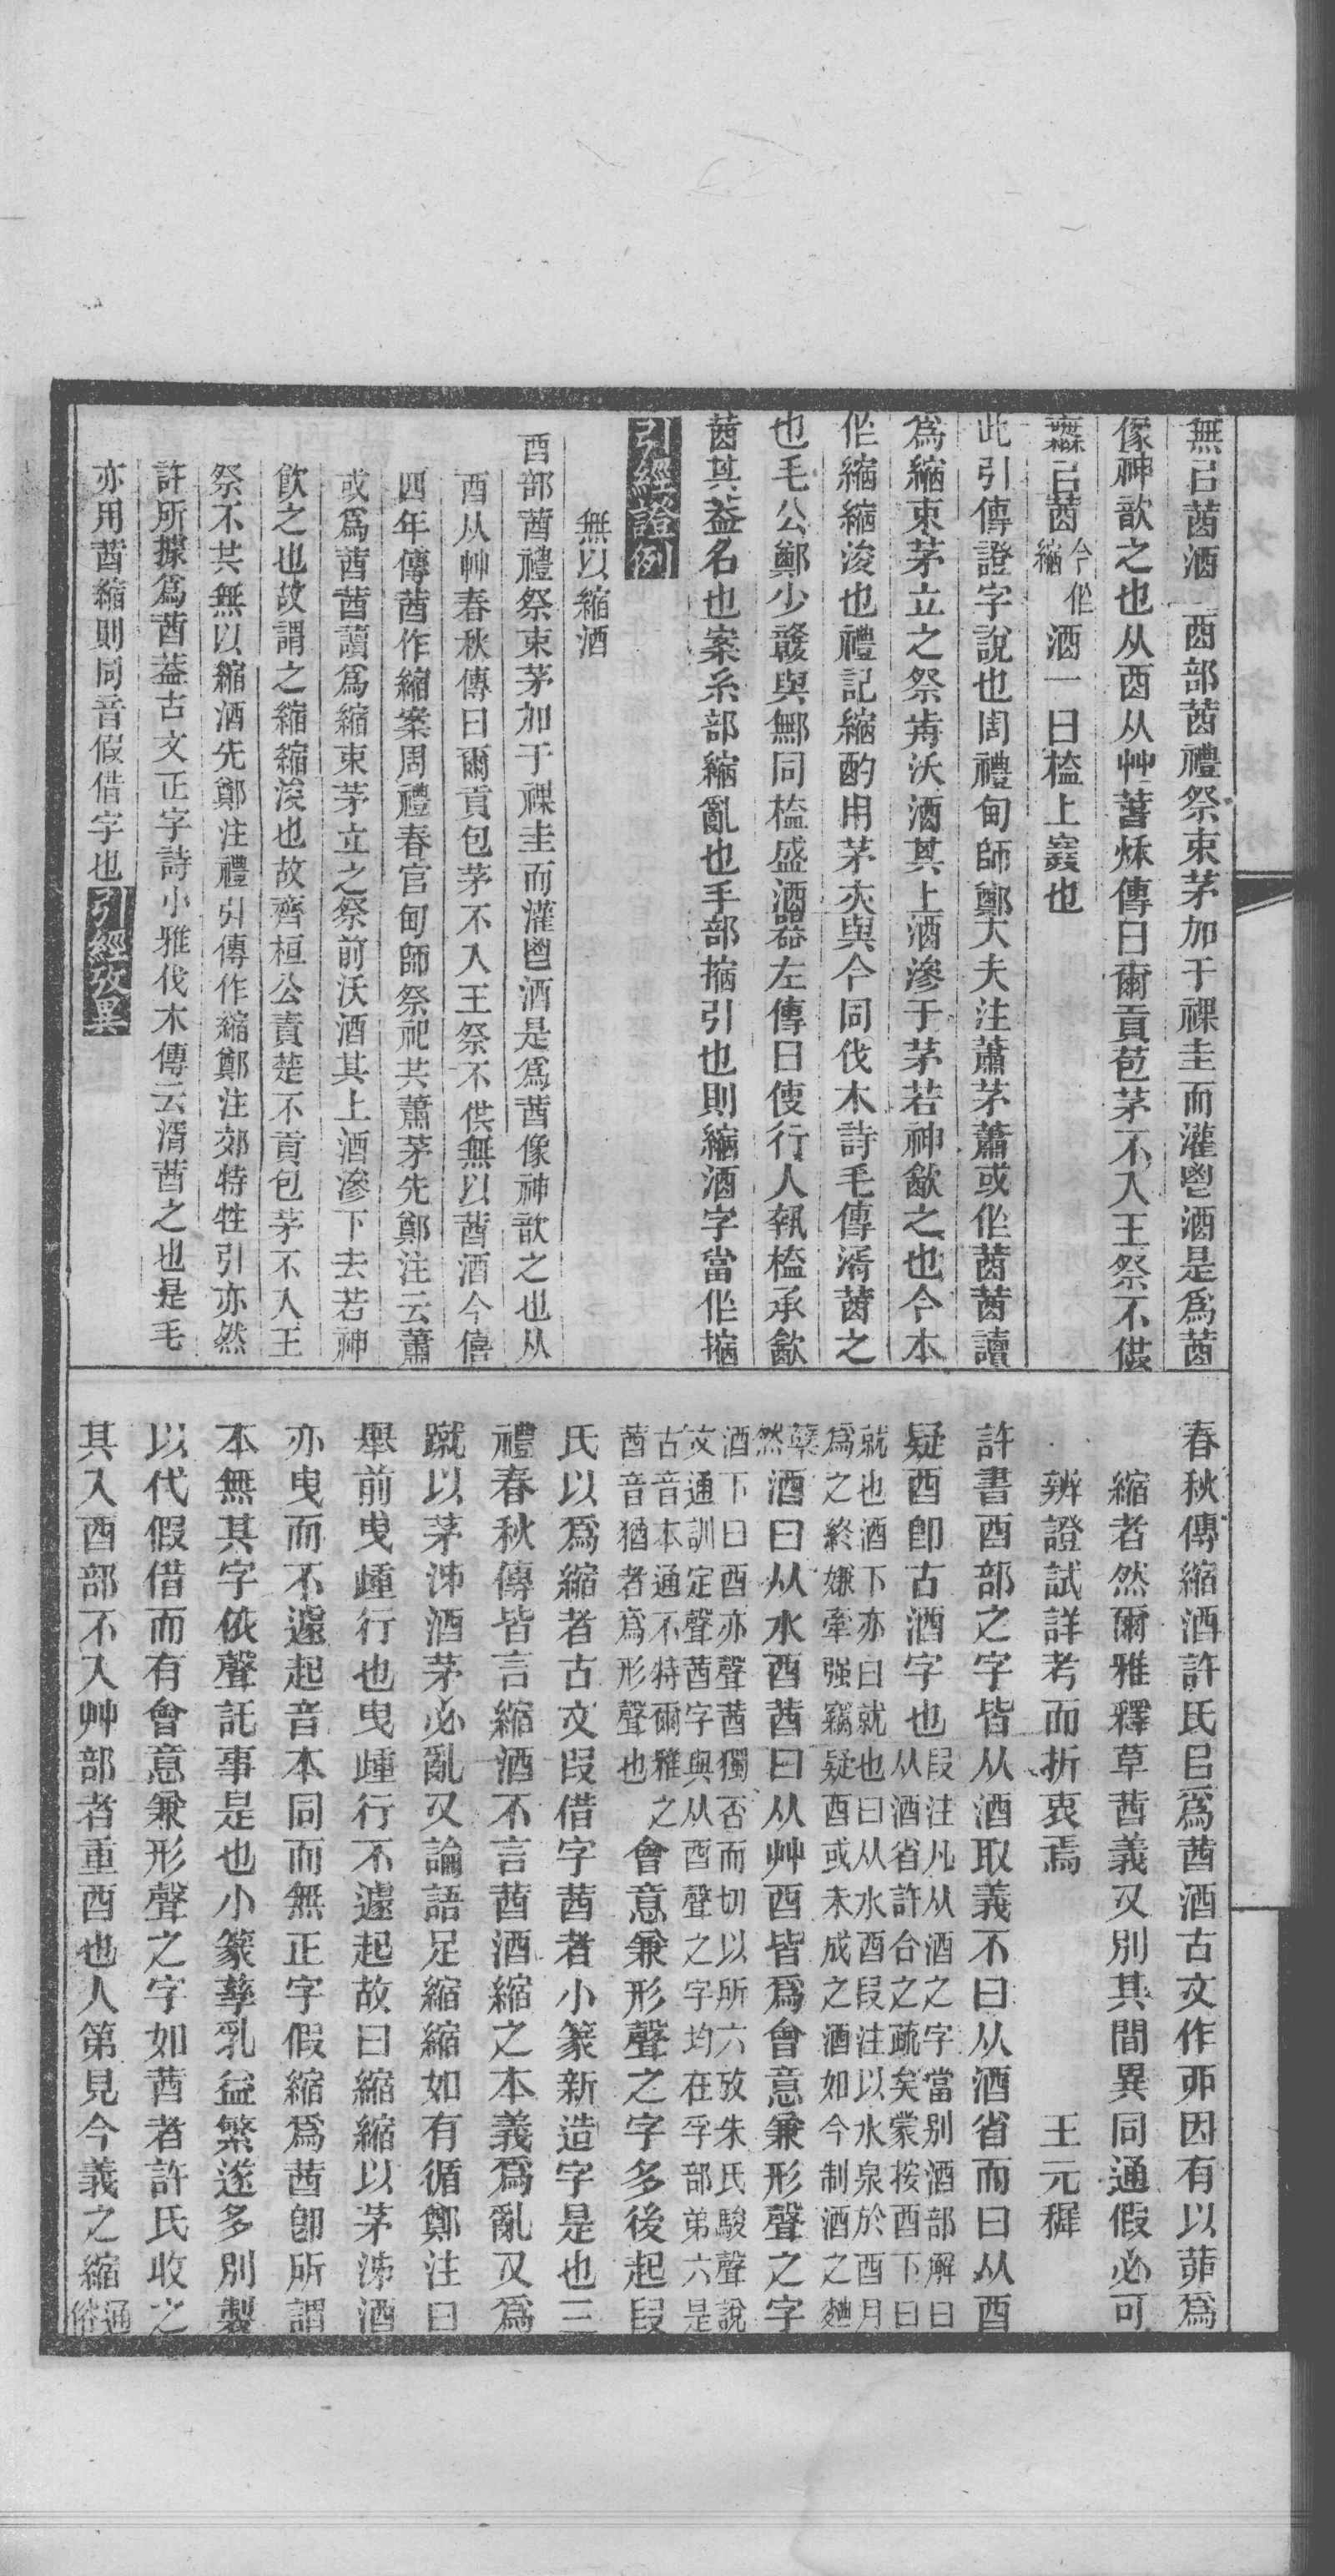 無㠯茜酒 酉部茜禮祭束茅加于祼圭而灌鬯酒是爲茜
像神歆之也从酉从艸䔥穌傳曰爾貢苞茅不入王祭不供
無㠯茜今作縮酒一曰榼上塞也
此引傳證字說也周禮甸師鄭大夫注蕭茅蕭或作茜茜讀
爲縮束茅立之祭歬沃酒其上酒滲于茅若神歙之也今本
作縮縮浚也禮記縮酌用茅夾與今同伐木詩毛傳湑茜之
也毛公鄭少贛與鄦同榼盛酒器左傳曰使行人執榼承歙
茜其葢名也案糸部縮亂也手部摍引也則縮酒字當作摍
引經證例
無以縮酒
酉部茜禮祭束茅加于祼圭而灌鬯酒是爲茜像神歆之也从
酉从艸春秋傳曰爾貢包茅不入王祭不供無以茜酒今僖
四年傳茜作縮案周禮春官甸師祭祀共蕭茅先鄭注云蕭
或爲茜茜讀爲縮束茅立之祭前沃酒其上酒滲下去若神
飲之也故謂之縮縮浚也故齊桓公責楚不貢包茅不入王
祭不共無以縮酒先鄭注禮引傳作縮鄭注郊特牲引亦然
許所據爲茜葢古文正字詩小雅伐木傳云湑茜之也是毛
亦用茜縮則同音假借字也引經攷異
春秋傳縮酒許氏㠯爲茜酒古文作丣因有以茆爲
縮者然爾雅釋草茜義又別其間異同通假必可
辨證試詳考而折衷焉 王元穉
許書酉部之字皆从酒取義不曰从酒省而曰从酉
疑酉卽古酒字也段注凡从酒之字當別酒部解曰从酒省許合之疏矣蒙按酉下曰
就也酒下亦曰就也曰从水酉段注以水泉於酉月爲之終嫌牽强竊疑酉或未成之酒如今制酒之麯
糵然酒曰从水酉茜曰从艸酉皆爲會意兼形聲之字
酒下曰酉亦聲茜獨否而切以所六攷朱氏駿聲說文通訓定聲茜字與从酉聲之字均在孚部弟六是
古音本通不特爾雅之茜音猶者爲形聲也會意兼形聲之字多後起段
氏以爲縮者古文叚借字茜者小篆新造字是也三
禮春秋傳皆言縮酒不言茜酒縮之本義爲亂又爲
蹴以茅泲酒茅必亂又論語足縮縮如有循鄭注曰
舉前曳踵行也曳踵行不遽起故曰縮縮以茅泲酒
亦曳而不遽起音本同而無正字假縮爲茜卽所謂
本無其字依聲託事是也小篆孳乳益繁遂多別製
以代假借而有會意兼形聲之字如茜者許氏收之
其入酉部不入艸部者重酉也人第見今義之縮通俗